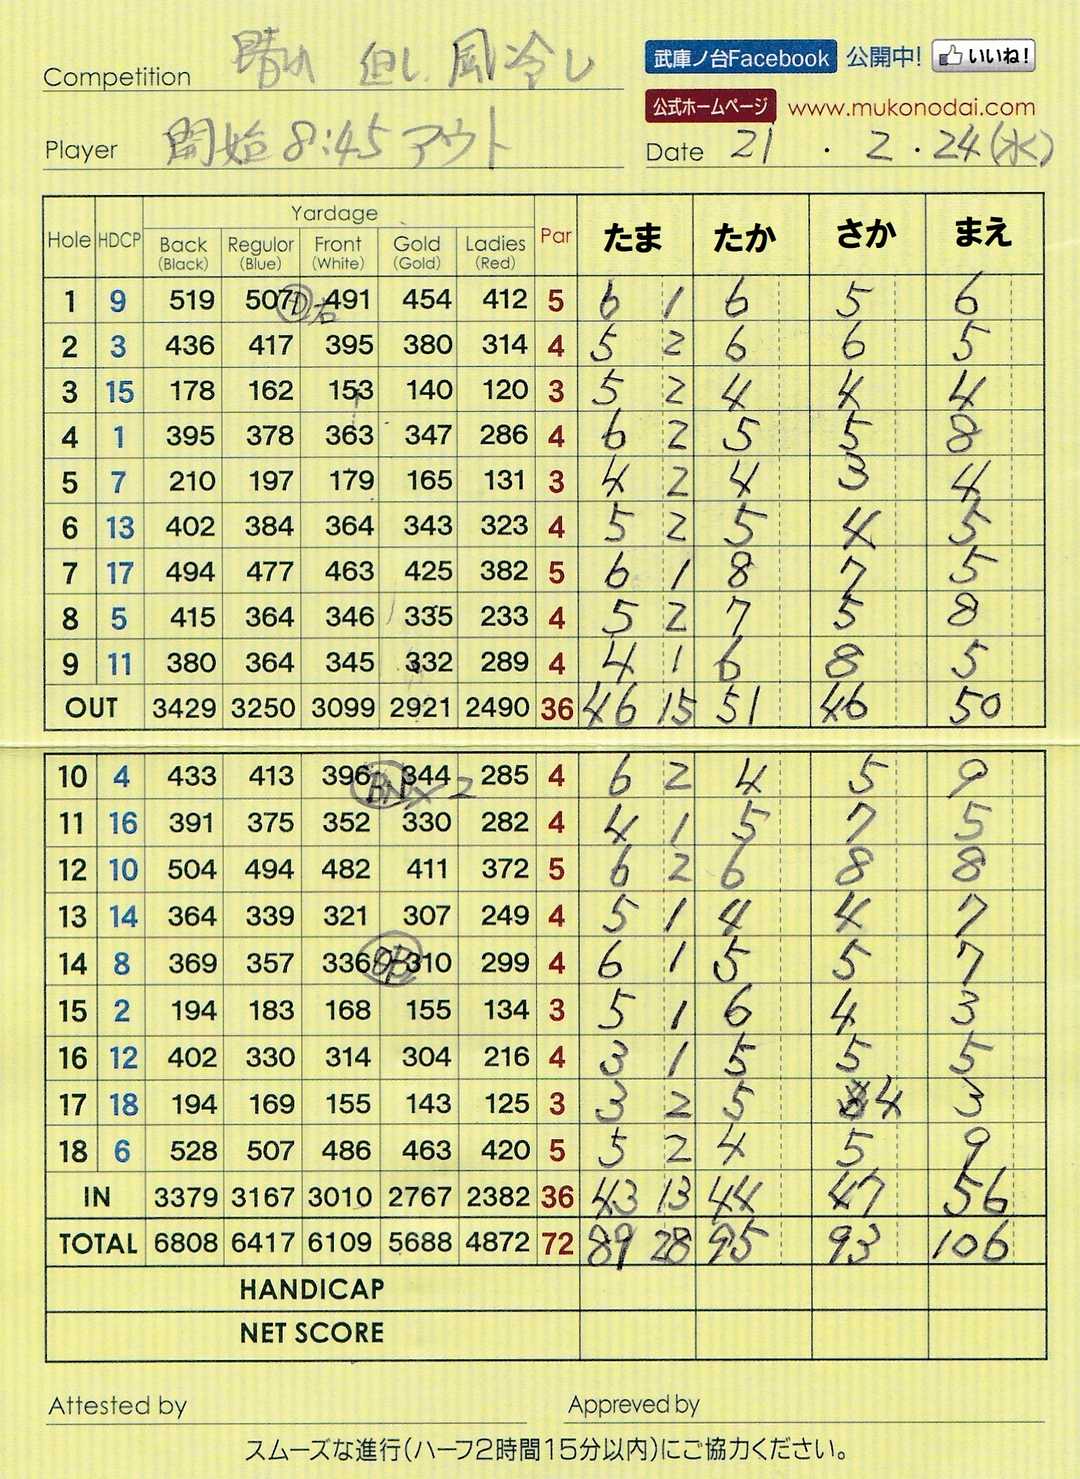 Competition 晴れ 但し 風冷し
武庫ノ台Facebook 公開中! いいね!
公式ホームページ www.mukonodai.com
Player 開始 8:45 アウト
Date 21 . 2 . 24(水)
Hole HDCP Yardage Par たま たか さか まえ
Back (Black) Regulor (Blue) Front (White) Gold (Gold) Ladies (Red)
1 9 519 507 D右 491 454 412 5 6 1 6 5 6
2 3 436 417 395 380 314 4 5 2 6 6 5
3 15 178 162 153 140 120 3 5 2 4 4 4
4 1 395 378 363 347 286 4 6 2 5 5 8
5 7 210 197 179 165 131 3 4 2 4 3 4
6 13 402 384 364 343 323 4 5 2 5 4 5
7 17 494 477 463 425 382 5 6 1 8 7 5
8 5 415 364 346 335 233 4 5 2 7 5 8
9 11 380 364 345 332 289 4 4 1 6 8 5
OUT 3429 3250 3099 2921 2490 36 46 15 51 46 50
10 4 433 413 396 BN×2 344 285 4 6 2 4 5 9
11 16 391 375 352 330 282 4 4 1 5 7 5
12 10 504 494 482 411 372 5 6 2 6 8 8
13 14 364 339 321 307 249 4 5 1 4 4 7
14 8 369 357 336 OB 310 299 4 6 1 5 5 7
15 2 194 183 168 155 134 3 5 1 6 4 3
16 12 402 330 314 304 216 4 3 1 5 5 5
17 18 194 169 155 143 125 3 3 2 5 4 3
18 6 528 507 486 463 420 5 5 2 4 5 9
IN 3379 3167 3010 2767 2382 36 43 13 44 47 56
TOTAL 6808 6417 6109 5688 4872 72 89 28 95 93 106
HANDICAP
NET SCORE
Attested by Appreved by
スムーズな進行(ハーフ2時間15分以内)にご協力ください。